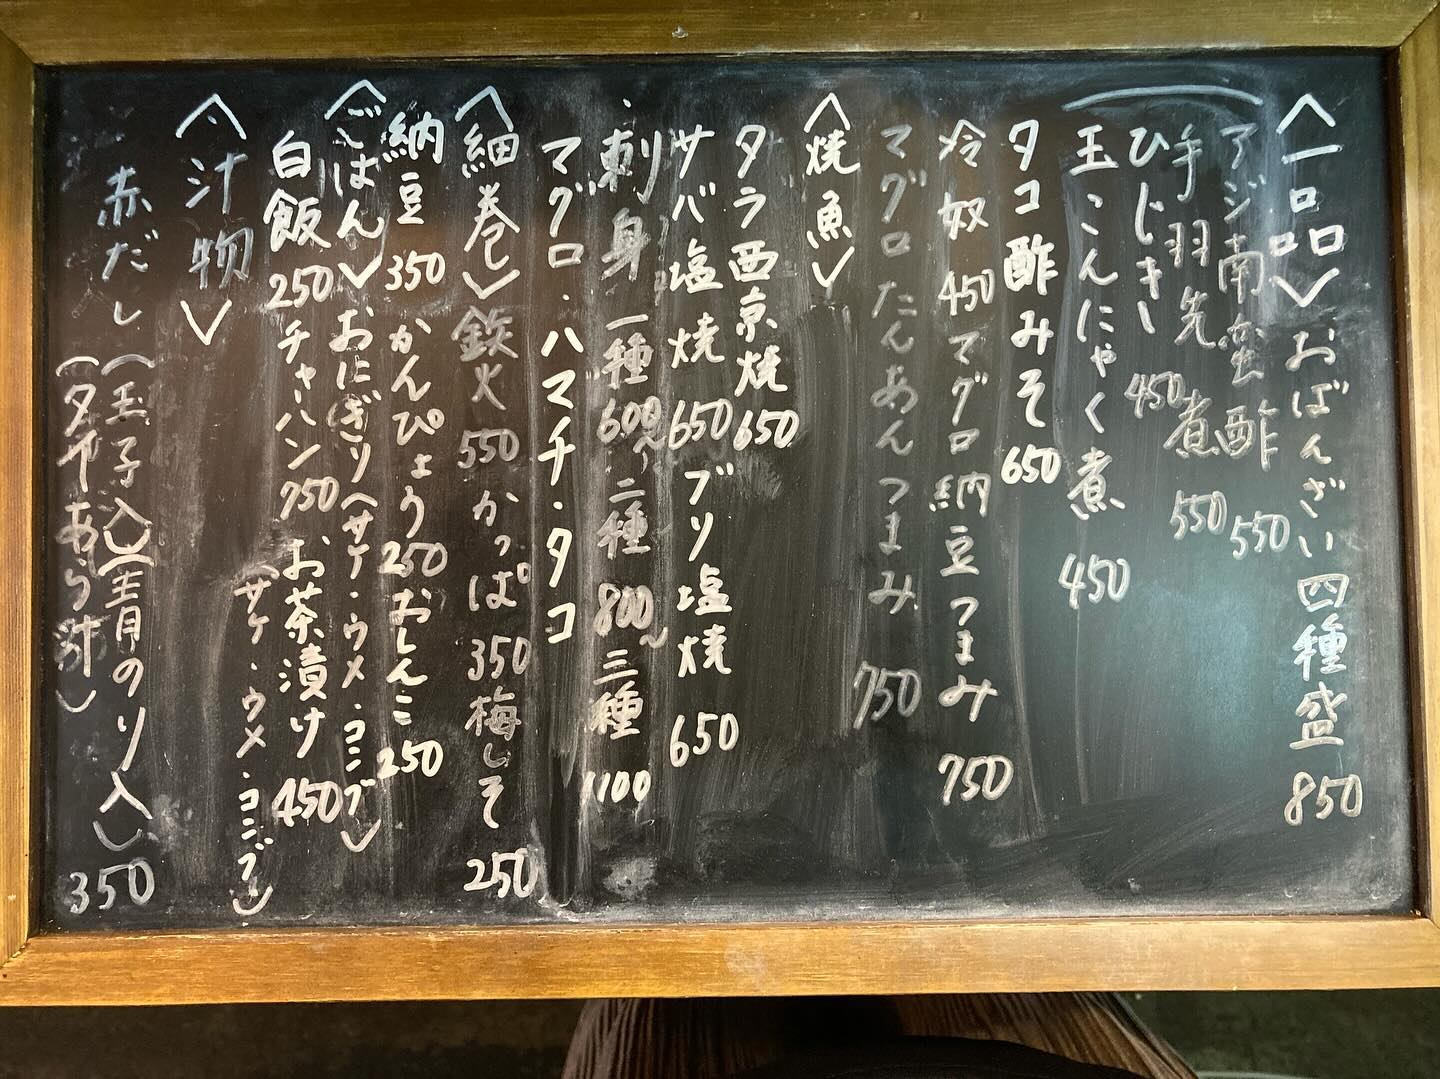 〈一品〉おばんざい四種盛 850
アジ南蛮酢 550
手羽先煮 550
ひじき 450
玉こんにゃく煮 450
タコ酢みそ 650
冷奴 450 マグロ納豆つまみ 750
マグロたんあんつまみ 750
〈焼魚〉
タラ西京焼 650
サバ塩焼 650 ブリ塩焼 650
・刺身 一種 600〜 二種 800〜 三種 1100
マグロ・ハマチ・タコ
〈細巻〉鉄火 550 かっぱ 350 梅しそ 250
納豆 350 かんぴょう 250 おしんこ 250
〈ごはん〉おにぎり(サケ・ウメ・コンブ)
白飯 250 チャーハン 750 お茶漬け 450
(サケ・ウメ・コンブ)
〈汁物〉
赤だし(玉子入)(青のり入) 350
(タイあら汁)